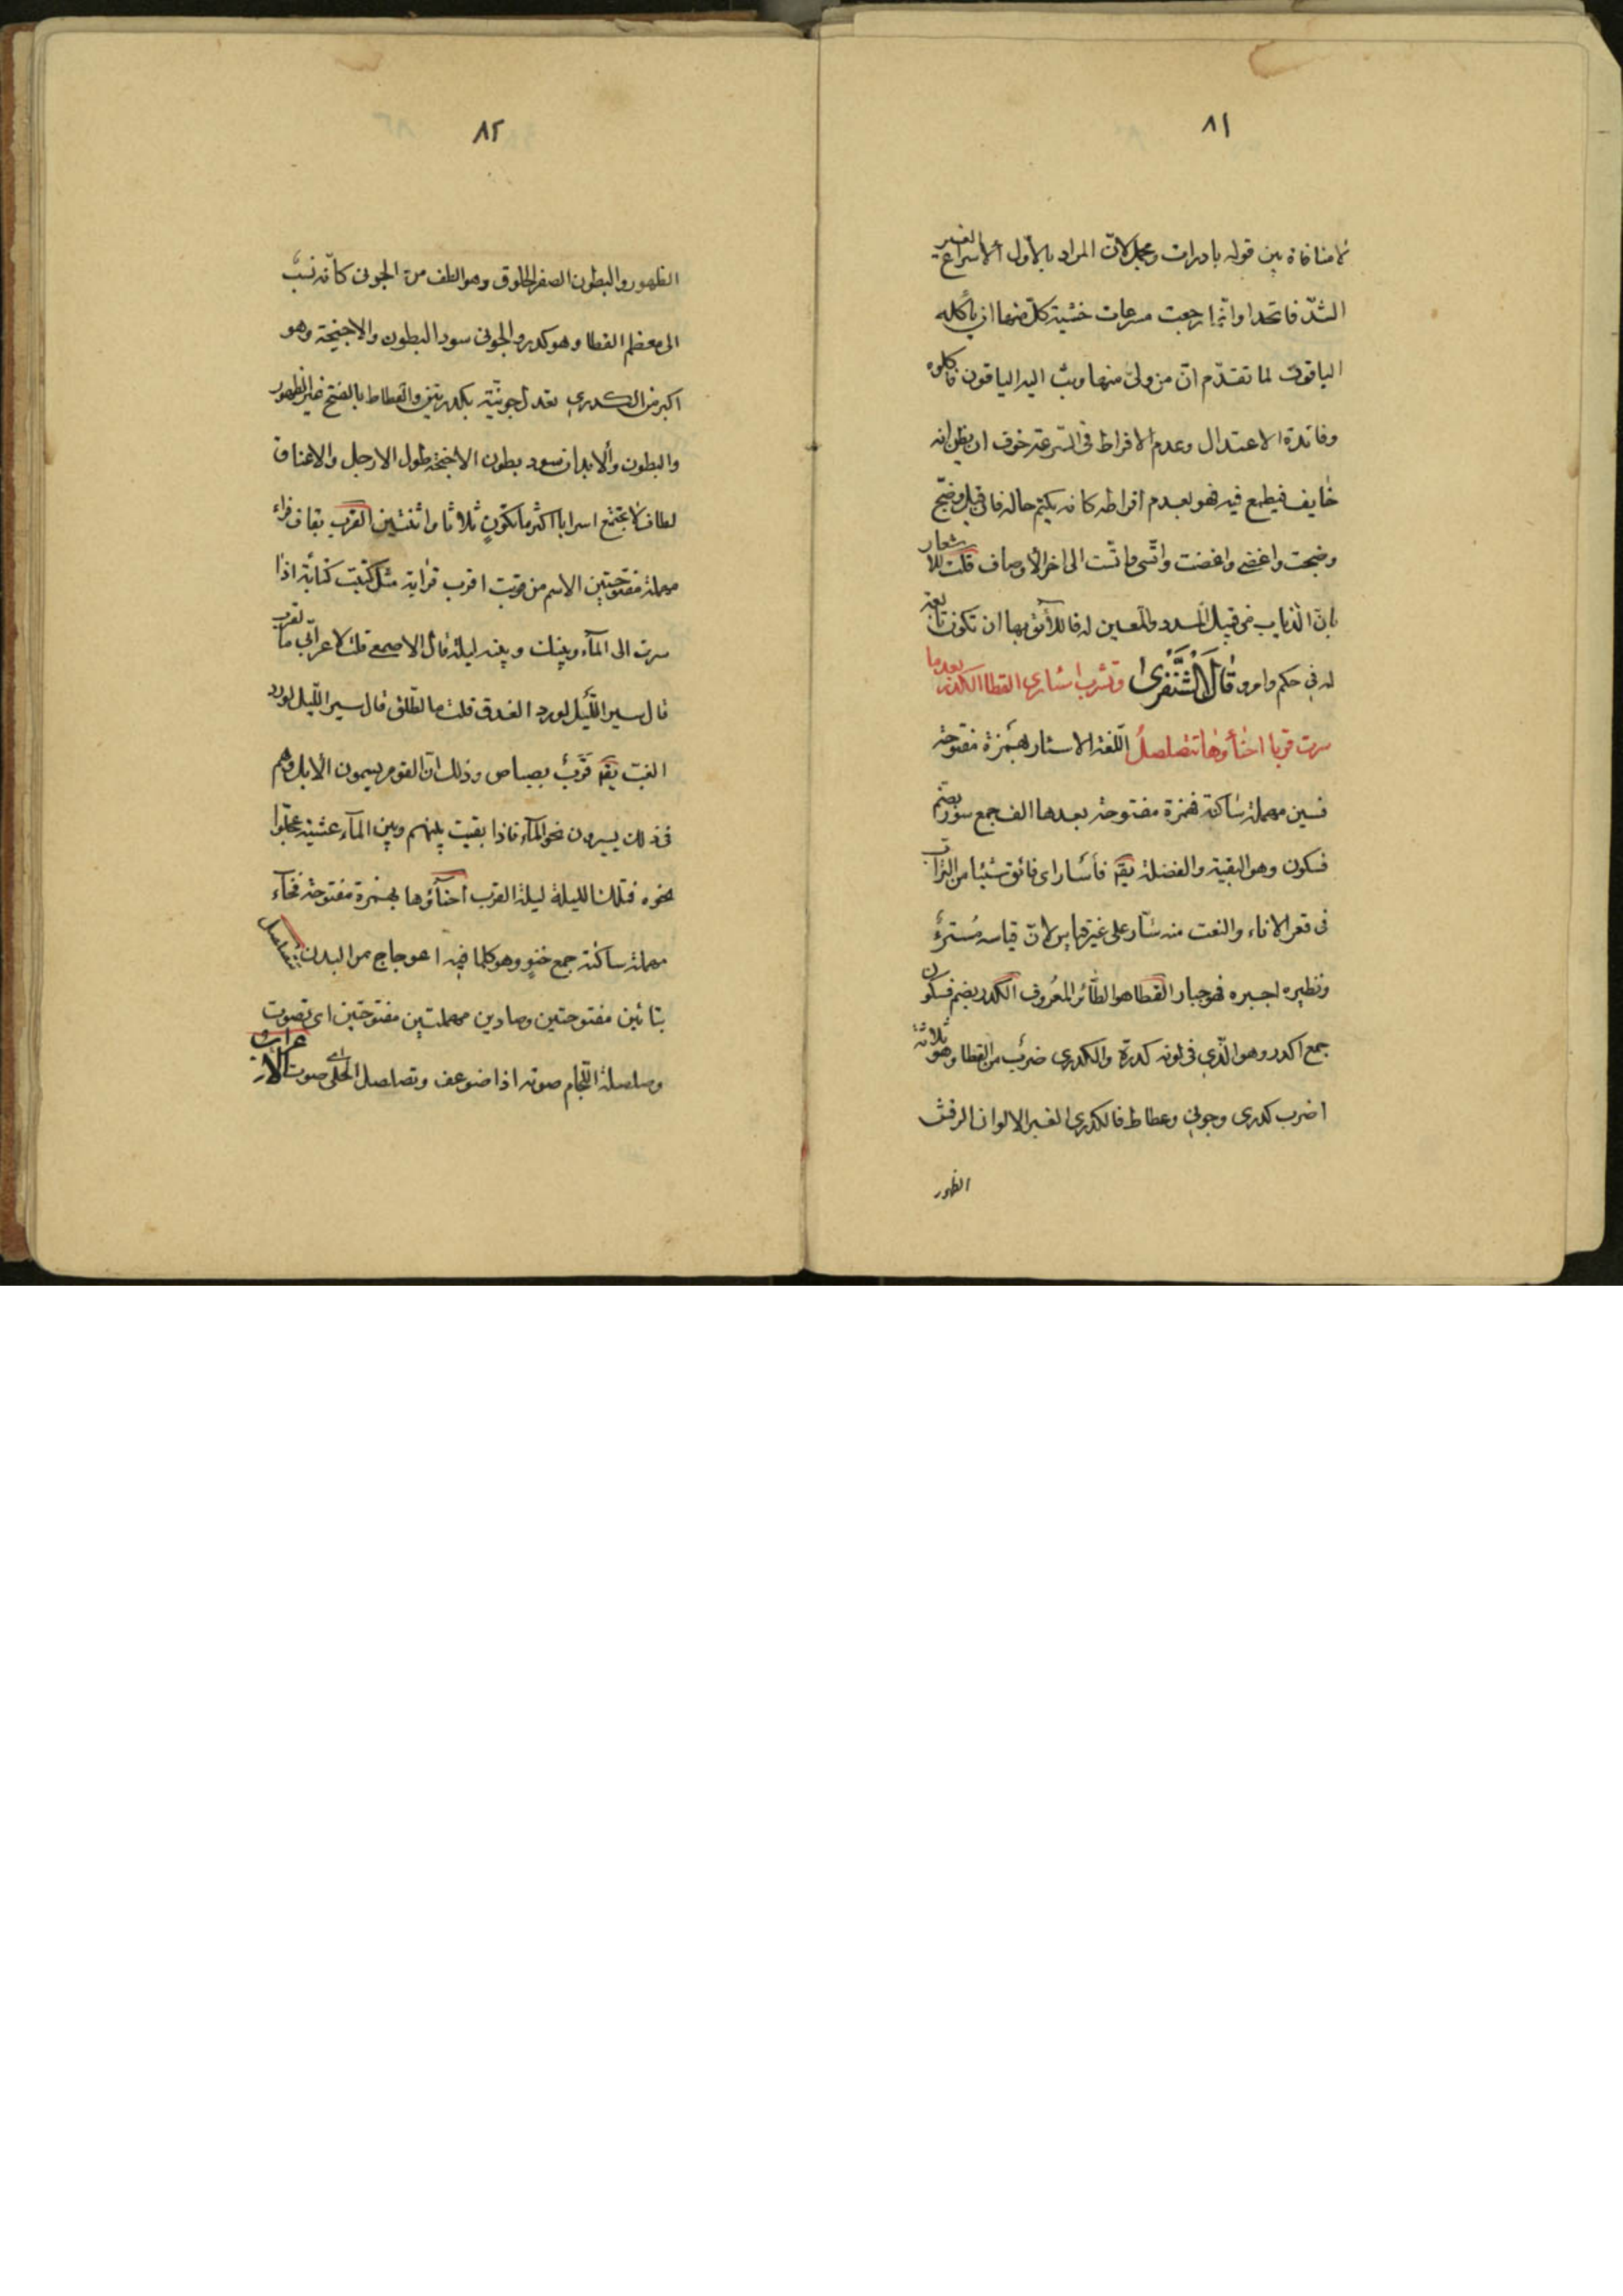 ٨١
لامنافاة بين قوله بادرات ومجمل لان المراد بالاول الاسراع الغير
الشد فاتحدا وانما رجعت مسرعات خشية كل منها ان يأكله
الباقون لما تقدم ان من ولى منها وثب اليه الباقون فاكلوه
وفائدة الاعتدال وعدم الافراط في السرعة خوف ان يظن انه
خايف فيطمع فيه فهو بعدم افراطه كانه يكتم حاله فان قيل وضج
وضجت واغضى واغضت واتسى واتست الى اخر الاوصاف قلت للاشعار
بان الذياب من قبيل المسدد والمعين له فاللائق بها ان تكون تابعة
له في حكم وامر وقال الشنفرى وتشرب اسارى القطا الكدر بعد ما
سرت قربا احناؤها تتصلصل اللغة الاسار بهمزة مفتوحة
فسين مهملة ساكنة فهمزة مفتوحة بعدها الف جمع سؤر بضم
فسكون وهو البقية والفضلة يقم فأسار اى فائق شيئا من الشراب
فى قعر الاناء والنعت منه سآر على غير قياس لان قياسه مسئر
ونظيره اجبره فهو جبار القطا هو الطائر المعروف الكدر بضم فسكون
جمع اكدر وهو الذي فى لونه كدرة والكدرى ضرب من القطا وهو ثلاثة
اضرب كدرى وجونى وغطاط فالكدرى الغبر الالوان الرقش
الظهور
٨٢
الظهور والبطون الصفر الحلوق وهو الطف من الجونى كانه نسب
الى معظم القطا وهو كدر والجونى سود البطون والاجنحة وهو
اكبر من الكدرى تعدل جونية بكدريتين والغطاط بالفتح غبر الظهور
والبطون والابدان سود بطون الاجنحة طول الارجل والاعناق
لطاف لا تجتمع اسرابا اكثر ما تكون ثلاثا واثنتين القرب بقاف فراء
مهملة مفتوحتين الاسم من قربت اقرب قرابة مثل كتبت كتابة اذا
سرت الى المآء وبينك وبينه ليلة قال الاصمعى قلت لاعرابى ما القرب
قال سير الليل لورد الغد قلت ما الطلق قال سير الليل لورد
الغب يقم قرب بصباص وذلك ان القوم يسيمون الابل وهم
فى ذلك يسيرون نحو المآء فاذا بقيت بينهم وبين المآء عشية عجلوا
نحوه فتلك الليلة ليلة القرب احناؤها بهمزة مفتوحة فحآء
مهملة ساكنة جمع حنو وهو كلما فيه اعوجاج من البدن تتصلصل
بتائين مفتوحتين وصادين مهملتين مفتوحتين اى تصوت
وصلصلة اللجام صوته اذا ضوعف وتصلصل الحلى اى صوت الاعراب